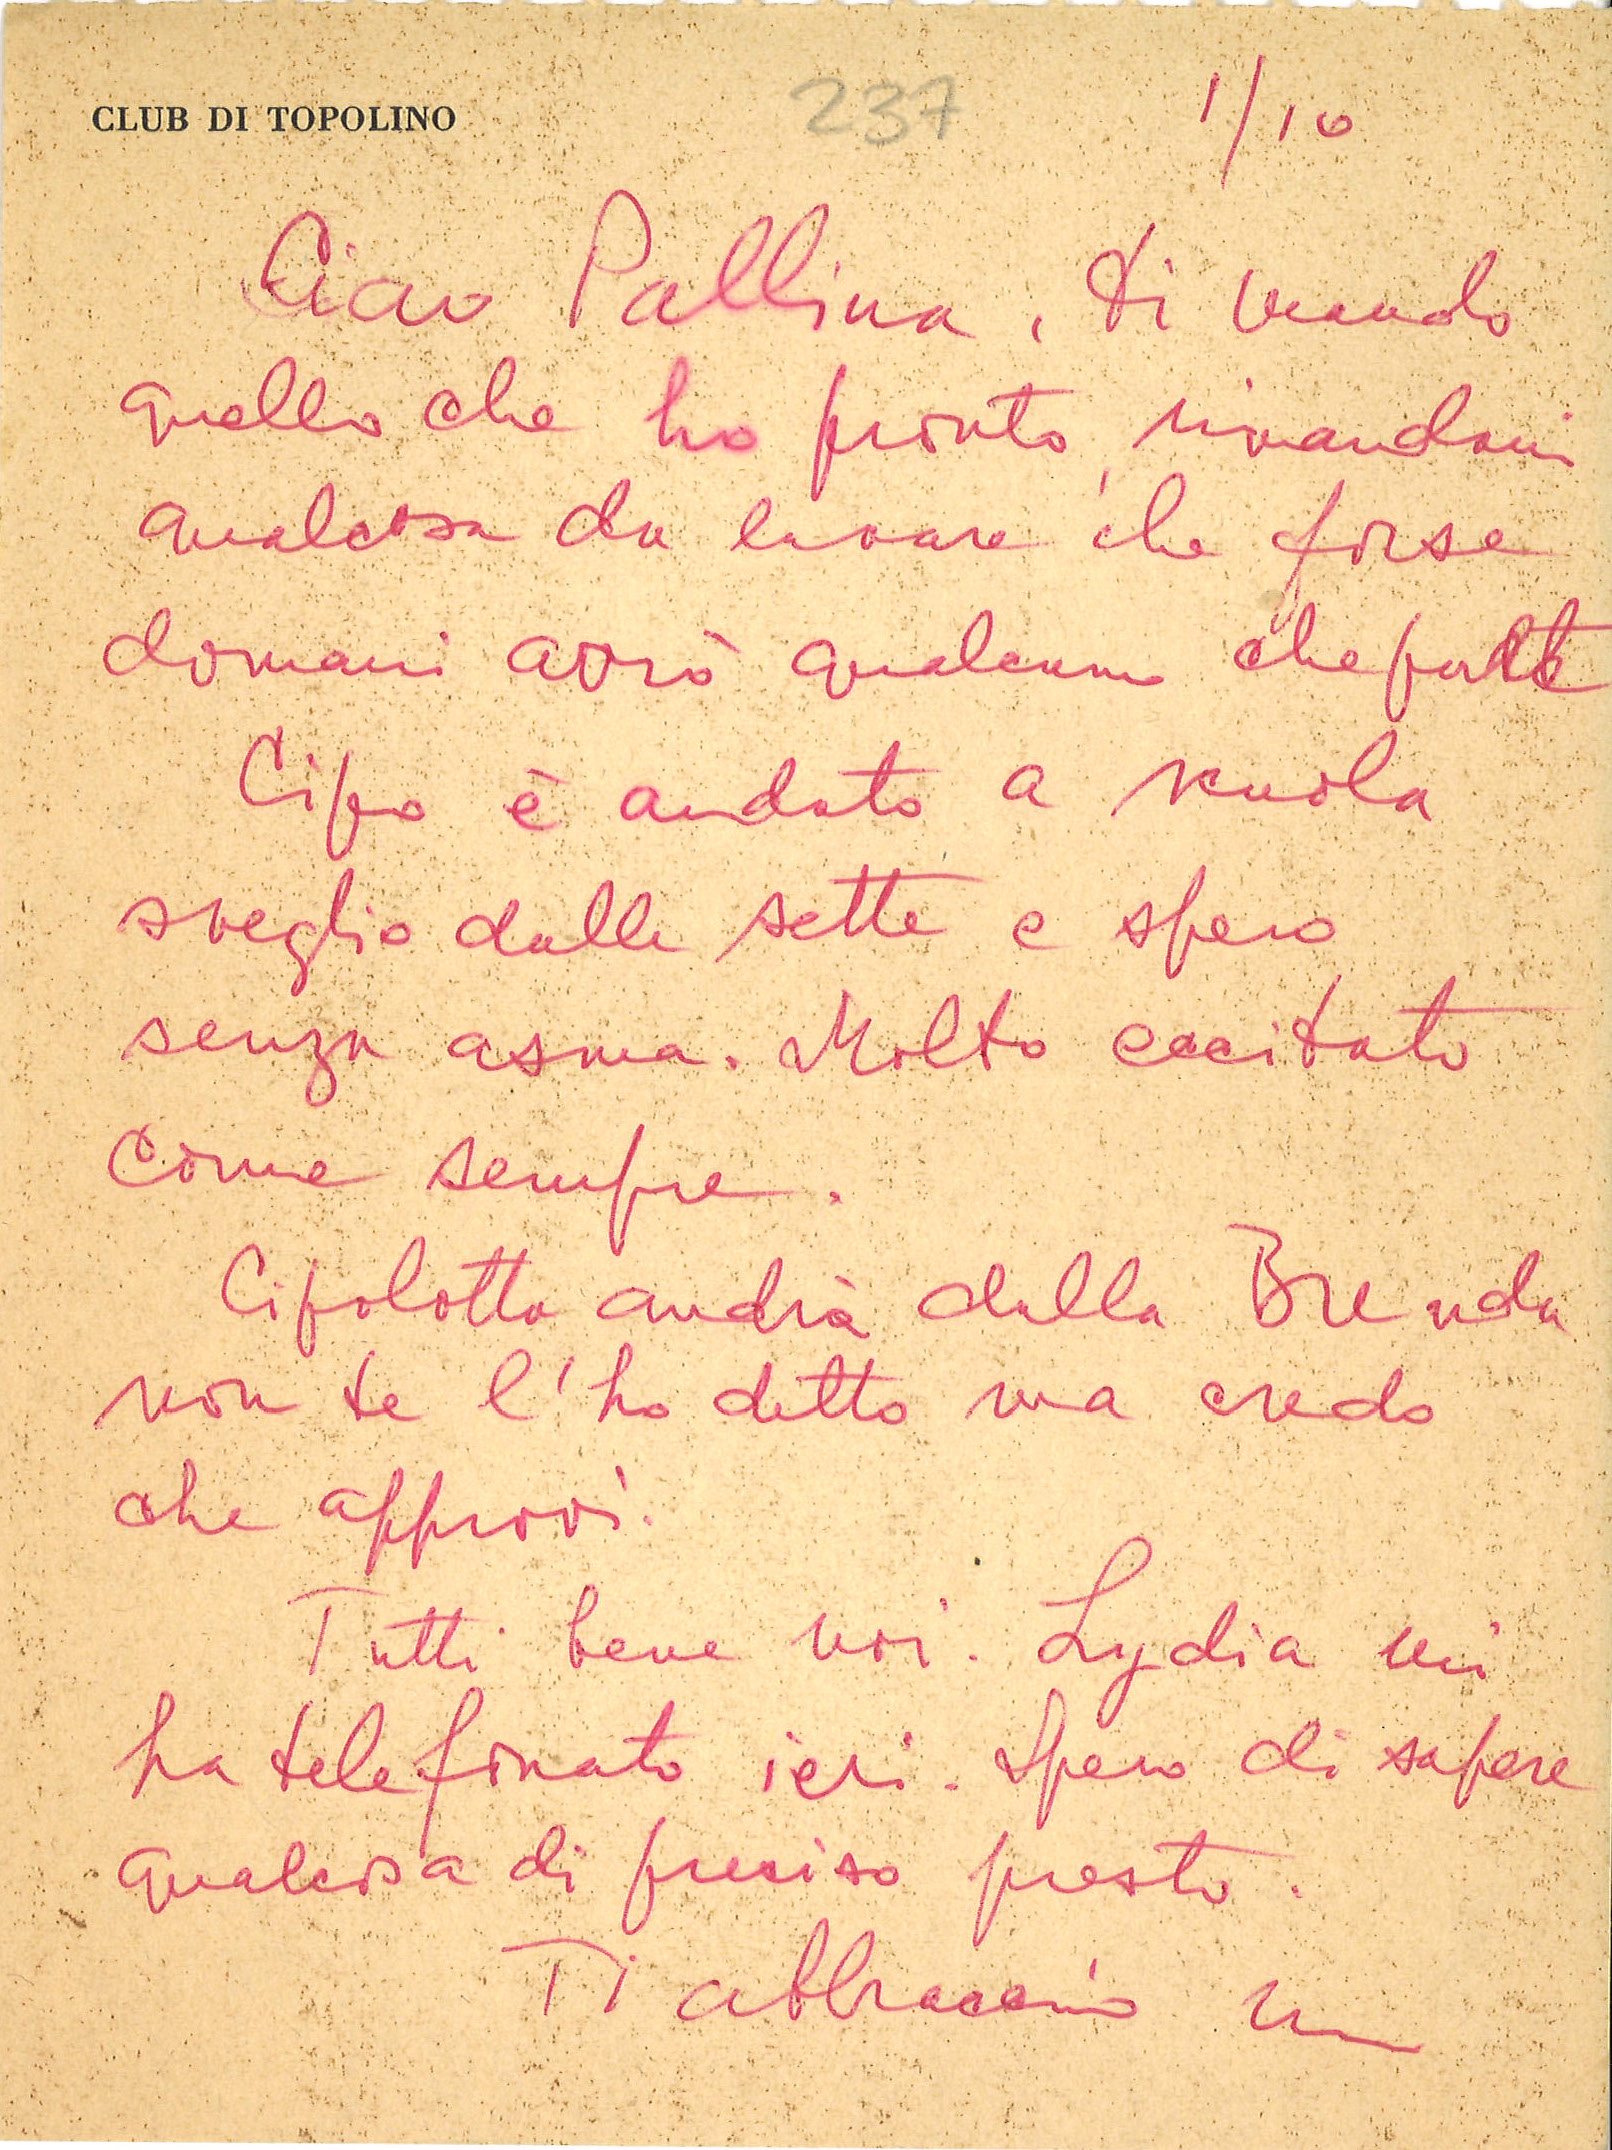 CLUB DI TOPOLINO
237
1/10
Ciao Pallina, ti mando
quello che ho pronto, rimandami
qualcosa da lavare che forse
domani avrò qualcuno che parte
Cipo è andato a scuola
sveglio dalle sette e spero
senza asma. Molto eccitato
come sempre.
Cipolotto andrà dalla Brenda
non te l'ho detto ma credo
che approvi.
Tutti bene noi. Lydia mi
ha telefonato ieri. Spero di sapere
qualcosa di preciso presto.
Ti abbraccio